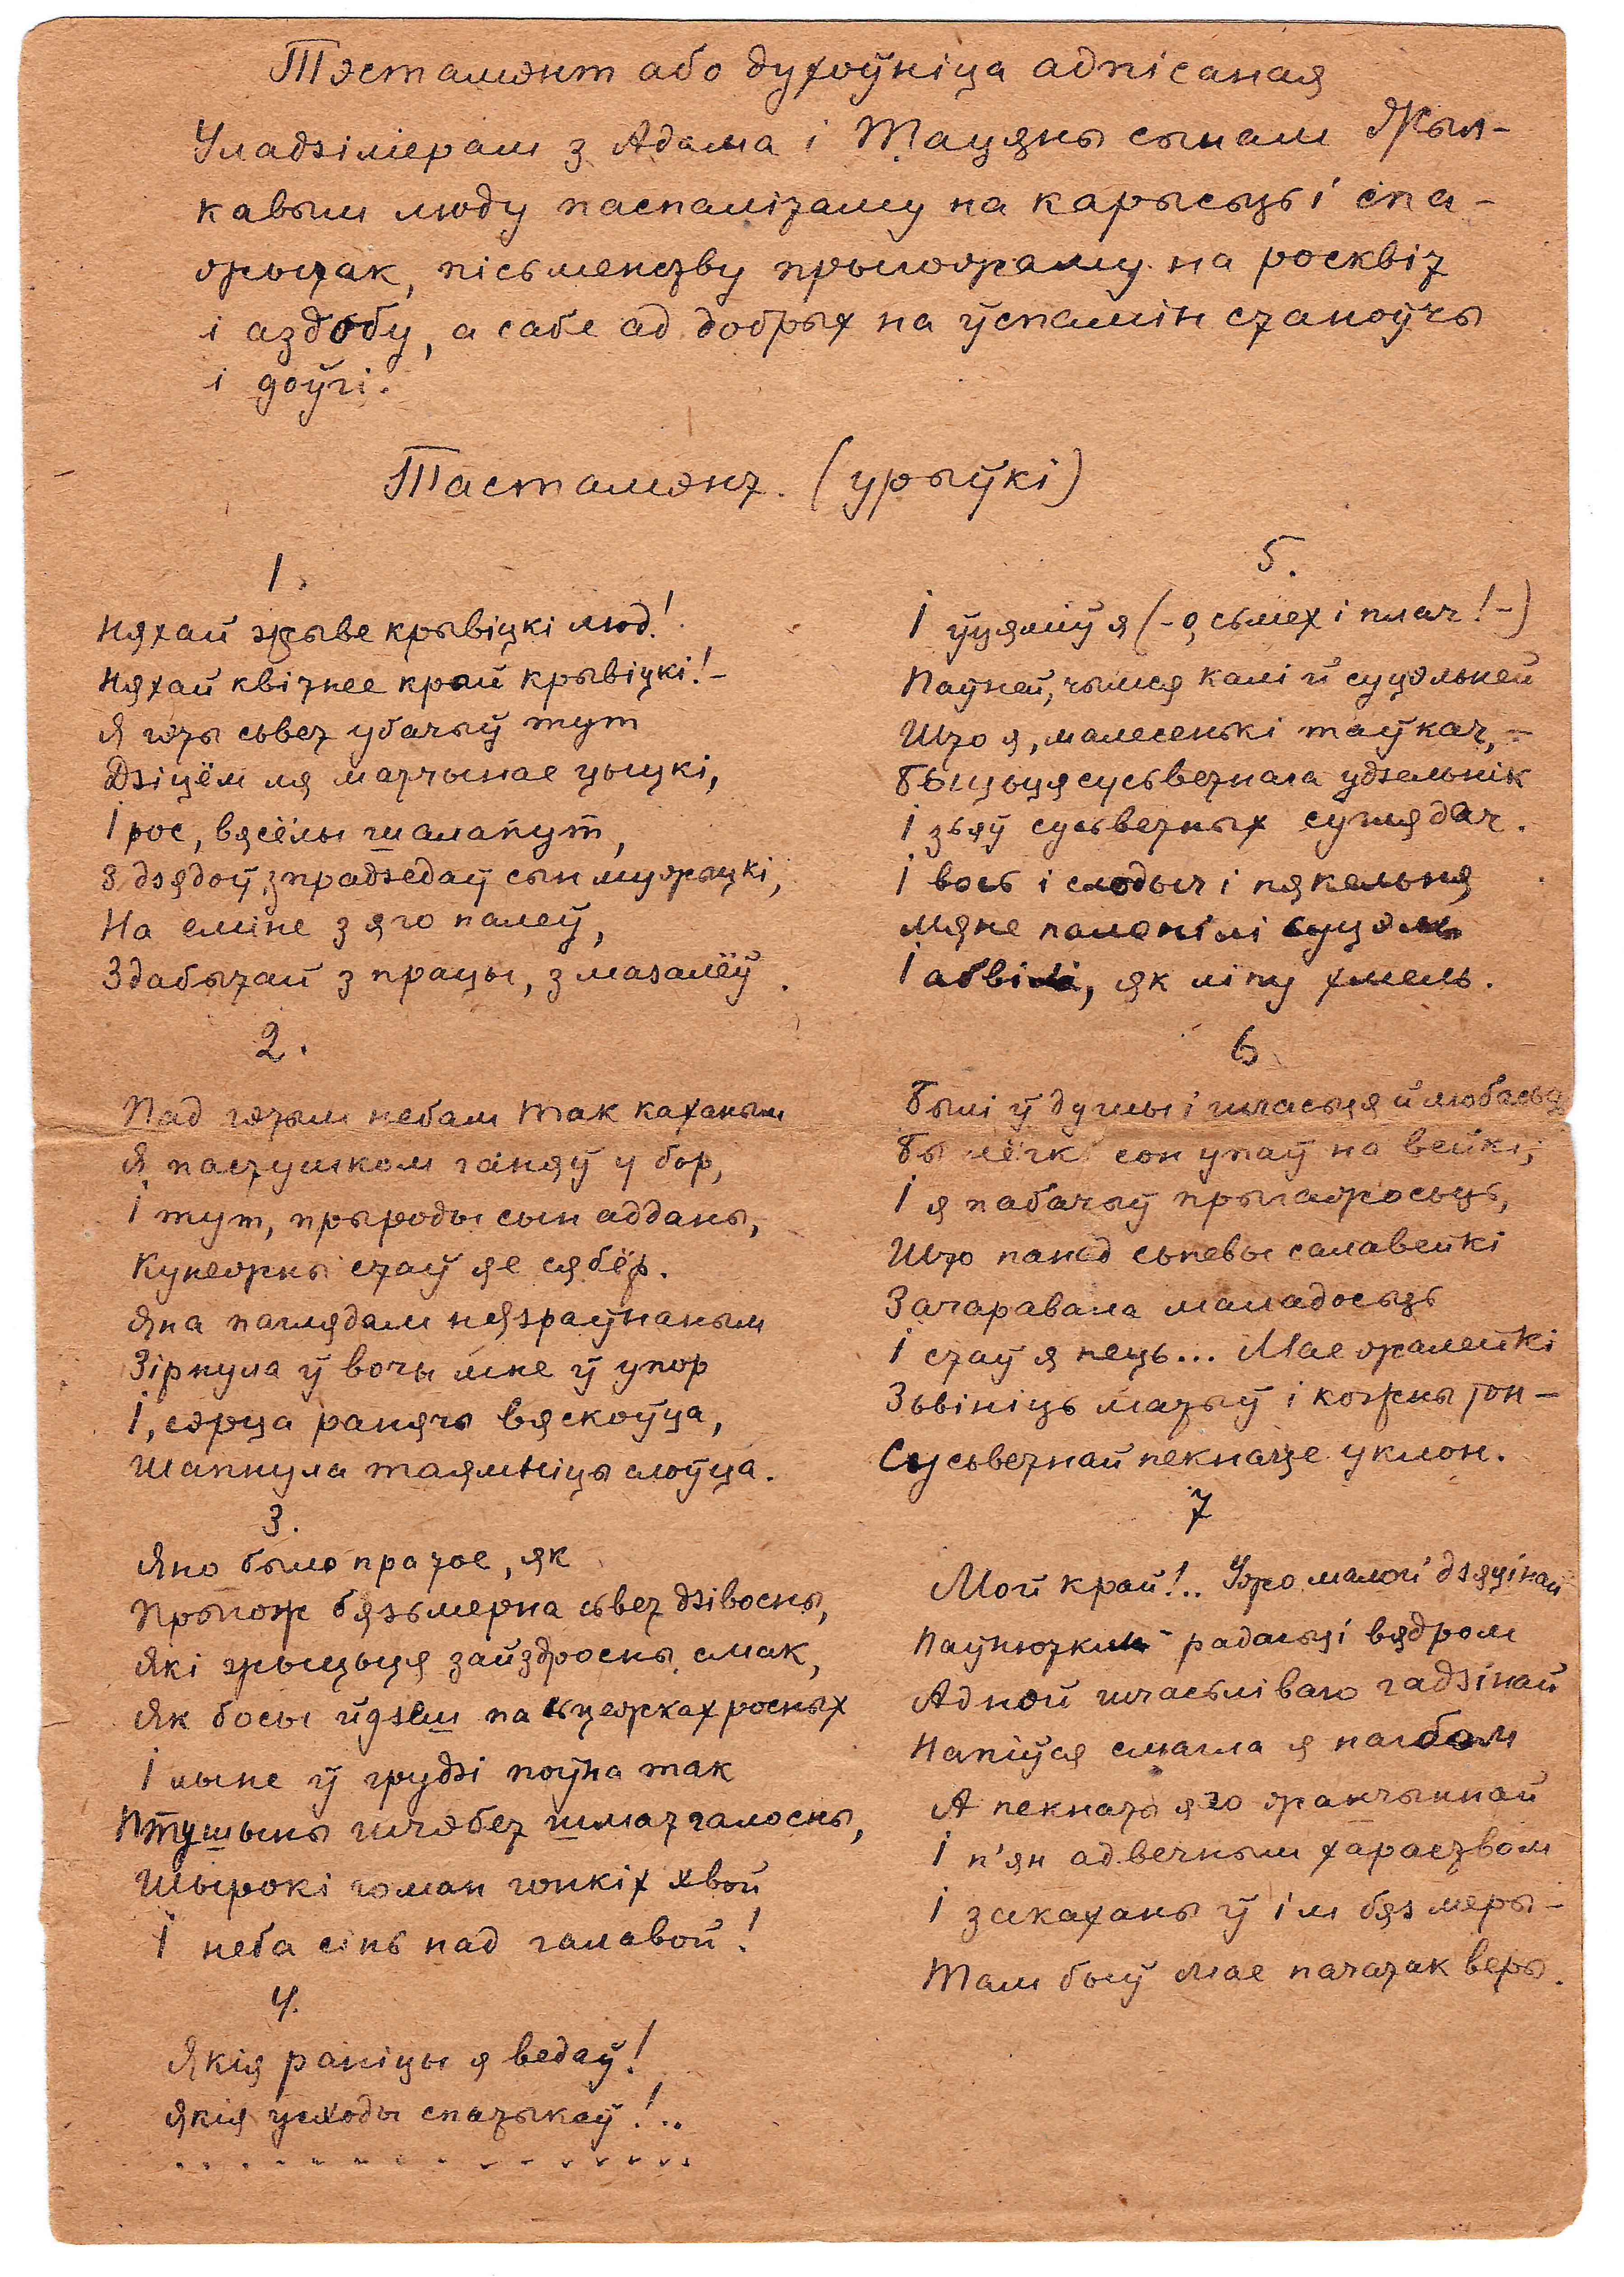 Тэстамэнт або духоўніца адпісаная
Уладзімерам з Адама і Тацяны сынам Жыл-
кавым люду паспалітаму на карысьць і спа-
жытак, пісьменству прыгожаму на росквіт
і аздобу, а сабе ад добрых на ўспамін станоўчы
і доўгі.
Тастамэнт. (урыўкі)
1.
Няхай жыве крывіцкі люд!
Няхай квітнее край крывіцкі! –
Я гэты сьвет убачыў тут
Дзіцём ля матчынае цыцкі,
І рос, вясёлы шалапут,
З дзядоў, з прадзедаў сын мужыцкі,
На еміне з яго палеў,
Здабытай з працы, з мазалёў.
2.
Пад гэтым небам так каханым
Я пастушком ганяў у бор,
І тут, прыроды сын адданы,
Кунежны стаў яе сябёр.
Яна паглядам незраўнаным
Зірнула ў вочы мне ў упор
І, сэрца ранячы вяскоўца,
Шапнула таямніцы слоўца.
3.
Яно было пра тое, як
Прыгож бязьмерна сьвет дзівосны,
Які жыцьця зайздросны смак,
Як босы йдзеш па сьцежках росных
І лыне ў грудзі поўна так
Птушыны шчэбет шматгалосны,
Шырокі гоман гонкіх хвой
І неба сінь над галавой!
4.
Якія раніцы я ведаў!
Якія усходы спатыкаў!..
. . . . . . . . . . . . . . . . .
5.
І ўцяміў я (– о, сьмех і плач! –)
Паўней, чымся калі й суцэльней
Што я, малесенькі таўкач, –
Быцьця сусьветнага удзельнік
І зьяў сусьветных суглядач.
І вось і слодыч і пякельня
Мяне паланілі суцэль
І абвілі, як ліпу хмель.
6
Былі ў думы і шчасьця й любасьць
Бы лёгкі сон упаў на вейкі,
І я пабачыў прыгажосьць,
Што панад сьпевы салавейкі
Зачаравала маладосьць
І стаў я пець... Мае жалейкі
Зьвініць матыў і кожны тон –
Сусьветнай пекнаце уклон.
7
Мой край!.. Ужо малой дзяцінай
Паўнюткім радасьці вядром
Адной шчасьліваю гадзінай
Напіўся смагла я нагбом
А пекнаты яго жанчыннай
І п'ян адвечным хараством
І закаханы ў ім бяз меры –
Там быў мае пачатак веры.